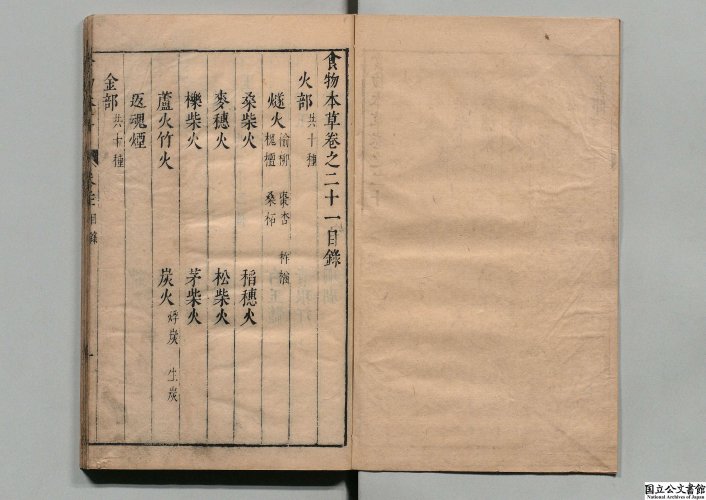 食物本草卷之二十一目錄
火部 共十種
燧火 榆柳 棗杏 柞楢 槐檀 桑柘
桑柴火 稻穗火
麥穗火 松柴火
櫟柴火 茅柴火
蘆火竹火 炭火 烰炭 生炭
返魂煙
金部 共十種
目錄
国立公文書館
National Archives of Japan